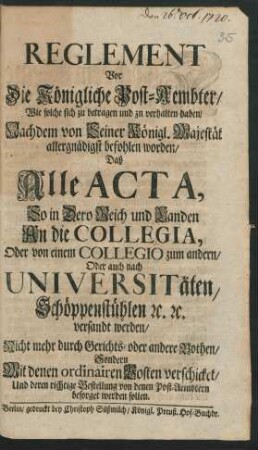 Den 26. Oct. 1720.
35
REGLEMENT
Vor
Die Königliche Post-Aembter/
Wie solche sich zu betragen und zu verhalten haben/
Nachdem von Seiner Königl. Majestät
allergnädigst befohlen worden/
Daß
Alle ACTA,
So in Dero Reich und Landen
An die COLLEGIA,
Oder von einem COLLEGIO zum andern/
Oder auch nach
UNIVERSITäten,
Schöppenstühlen ꝛc. ꝛc.
versandt werden/
Nicht mehr durch Gerichts- oder andere Bothen/
Sondern
Mit denen ordinairen Posten verschicket/
Und deren richtige Bestellung von denen Post-Aembtern
besorget werden sollen.
Berlin/ gedruckt bey Christoph Süßmilch/ Königl. Preuß. Hof-Buchdr.